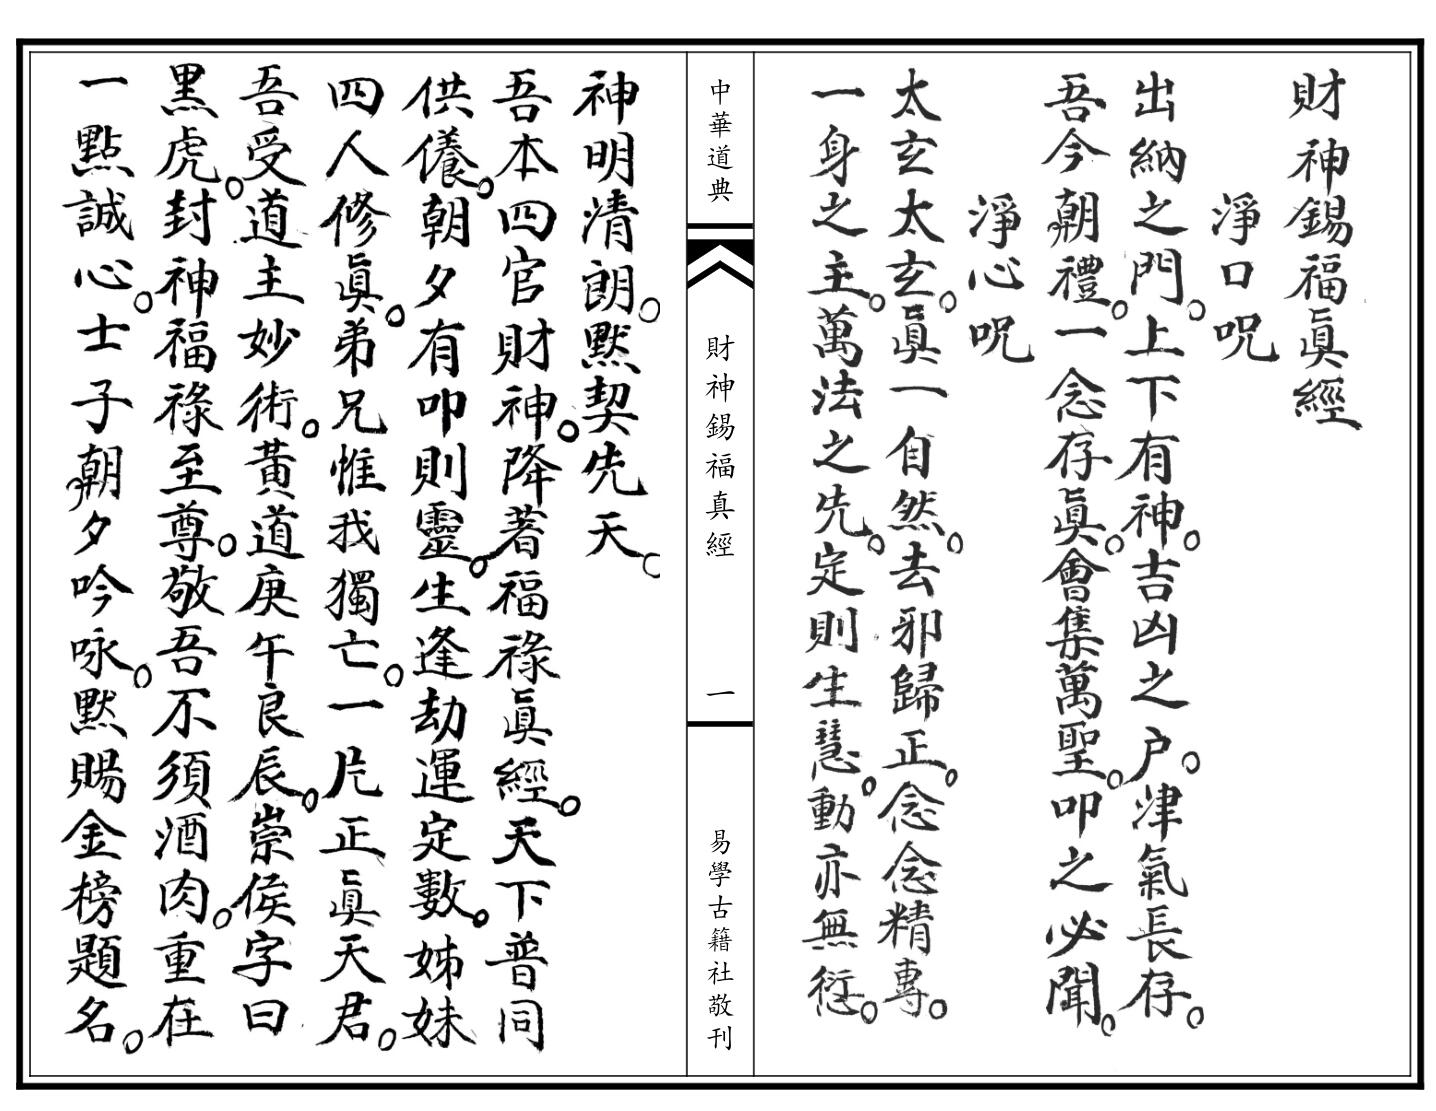 財神錫福眞經
淨口呪
出納之門。上下有神。吉凶之户。津氣長存。
吾今朝禮。一念存眞。會集萬聖。叩之必聞。
淨心呪
太玄太玄。眞一自然。去邪歸正。念念精專。
一身之主。萬法之先。定則生慧。動亦無愆。
中華道典
財神錫福真經
一
易學古籍社敬刊
神明清朗。默契先天。
吾本四官財神。降著福祿眞經。天下普同
供儀。朝夕有叩則靈。生逢劫運定數。姊妹
四人修眞。弟兄惟我獨亡。一片正眞天君。
吾受道主妙術。黃道庚午良辰。崇侯字曰
黑虎。封神福祿至尊。敬吾不須酒肉。重在
一點誠心。士子朝夕吟咏。默賜金榜題名。